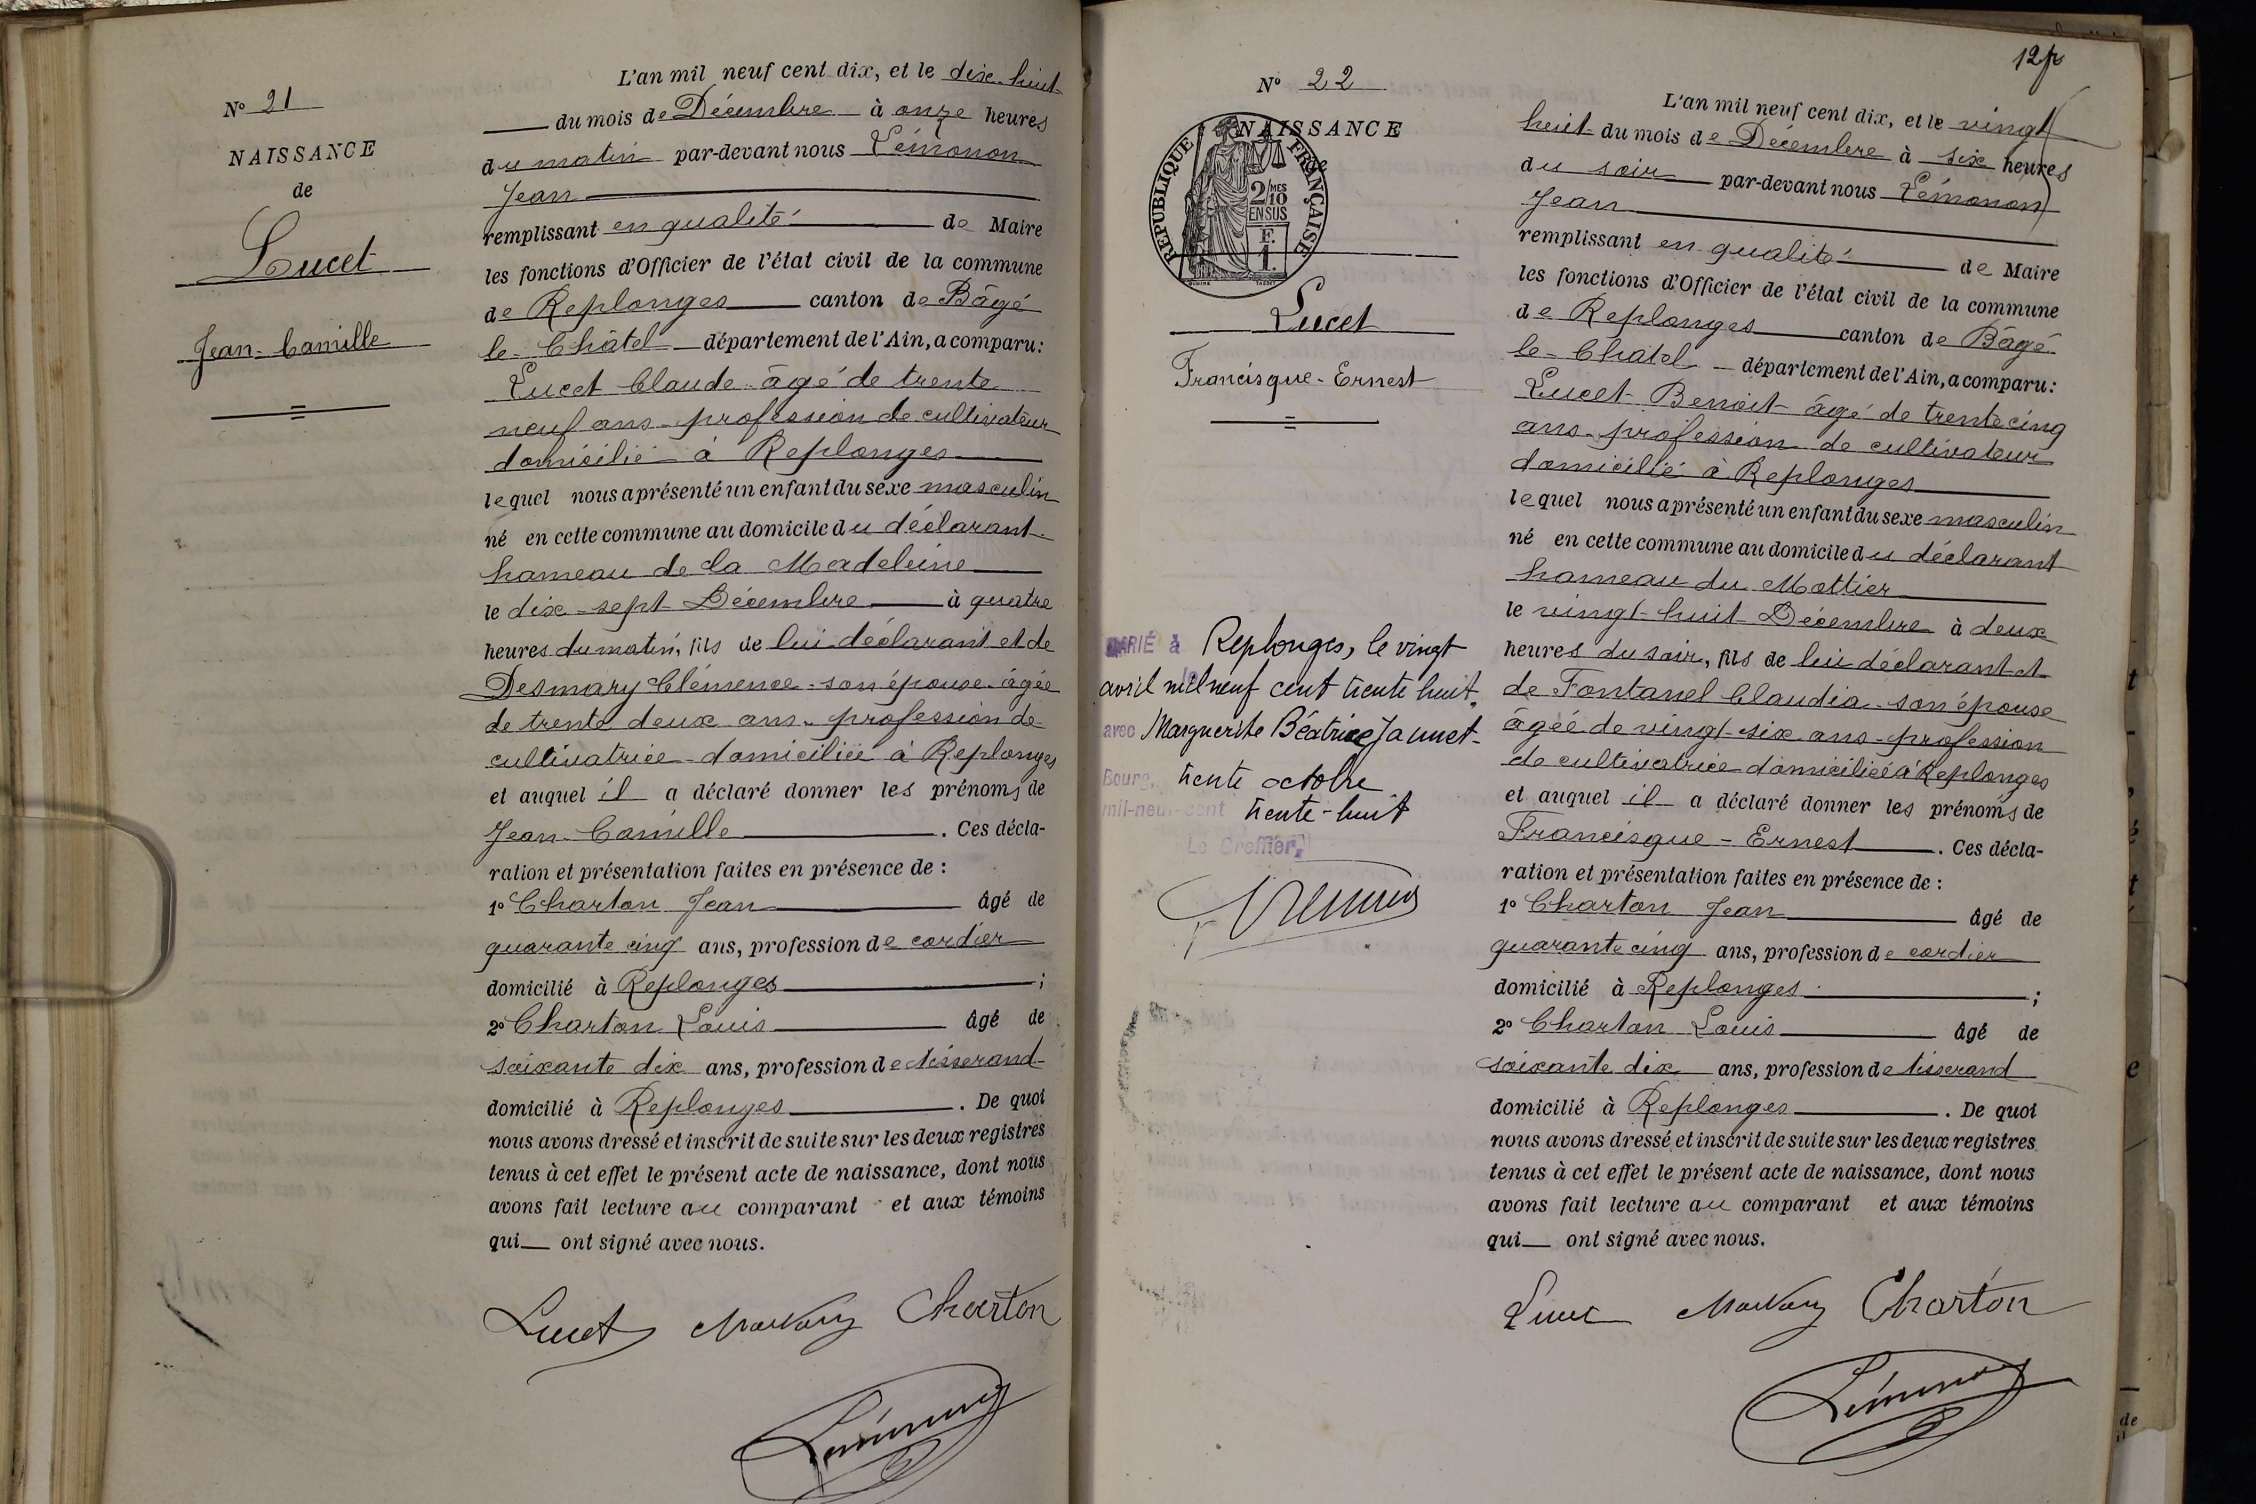 N° 21
NAISSANCE
de
Lucet
Jean-Camille
L'an mil neuf cent dix, et le dix-huit
du mois de Décembre à onze heures
du matin par-devant nous Lémonon
Jean
remplissant en qualité de Maire
les fonctions d'Officier de l'état civil de la commune
de Replonges canton de Bâgé
le-Châtel département de l'Ain, a comparu:
Lucet Claude âgé de trente
neuf ans profession de cultivateur
domicilié à Replonges
lequel nous a présenté un enfant du sexe masculin
né en cette commune au domicile du déclarant
hameau de la Madeleine
le dix-sept Décembre à quatre
heures du matin, fils de lui déclarant et de
Desmary Clémence son épouse âgée
de trente deux ans profession de
cultivatrice domiciliée à Replonges
et auquel il a déclaré donner les prénoms de
Jean-Camille. Ces décla-
ration et présentation faites en présence de :
1° Charton Jean âgé de
quarante cinq ans, profession de cordier
domicilié à Replonges ;
2° Charton Louis âgé de
soixante dix ans, profession de tisserand
domicilié à Replonges. De quoi
nous avons dressé et inscrit de suite sur les deux registres
tenus à cet effet le présent acte de naissance, dont nous
avons fait lecture au comparant et aux témoins
qui ont signé avec nous.
Lucet Charton
Lémonon
12
N° 22
NAISSANCE
RÉPUBLIQUE FRANÇAISE
2/10 MES
EN SUS
F.
1.
Lucet
Francisque-Ernest
MARIÉ à Replonges, le vingt
avril mil neuf cent trente huit
avec Marguerite Béatrice Jaunet
Bourg, trente octobre
mil-neuf-cent trente-huit
Le Greffier,
L'an mil neuf cent dix, et le vingt
huit du mois de Décembre à six heures
du soir par-devant nous Lémonon
Jean
remplissant en qualité de Maire
les fonctions d'Officier de l'état civil de la commune
de Replonges canton de Bâgé
le-Châtel département de l'Ain, a comparu:
Lucet Benoit âgé de trente cinq
ans profession de cultivateur
domicilié à Replonges
lequel nous a présenté un enfant du sexe masculin
né en cette commune au domicile du déclarant
hameau du Mottier
le vingt-huit Décembre à deux
heures du soir, fils de lui déclarant et
de Fontanel Claudia son épouse
âgée de vingt-six ans profession
de cultivatrice domiciliée à Replonges
et auquel il a déclaré donner les prénoms de
Francisque-Ernest. Ces décla-
ration et présentation faites en présence de :
1° Charton Jean âgé de
quarante cinq ans, profession de cordier
domicilié à Replonges ;
2° Charton Louis âgé de
soixante dix ans, profession de tisserand
domicilié à Replonges. De quoi
nous avons dressé et inscrit de suite sur les deux registres
tenus à cet effet le présent acte de naissance, dont nous
avons fait lecture au comparant et aux témoins
qui ont signé avec nous.
Lucet Charton
Lémonon